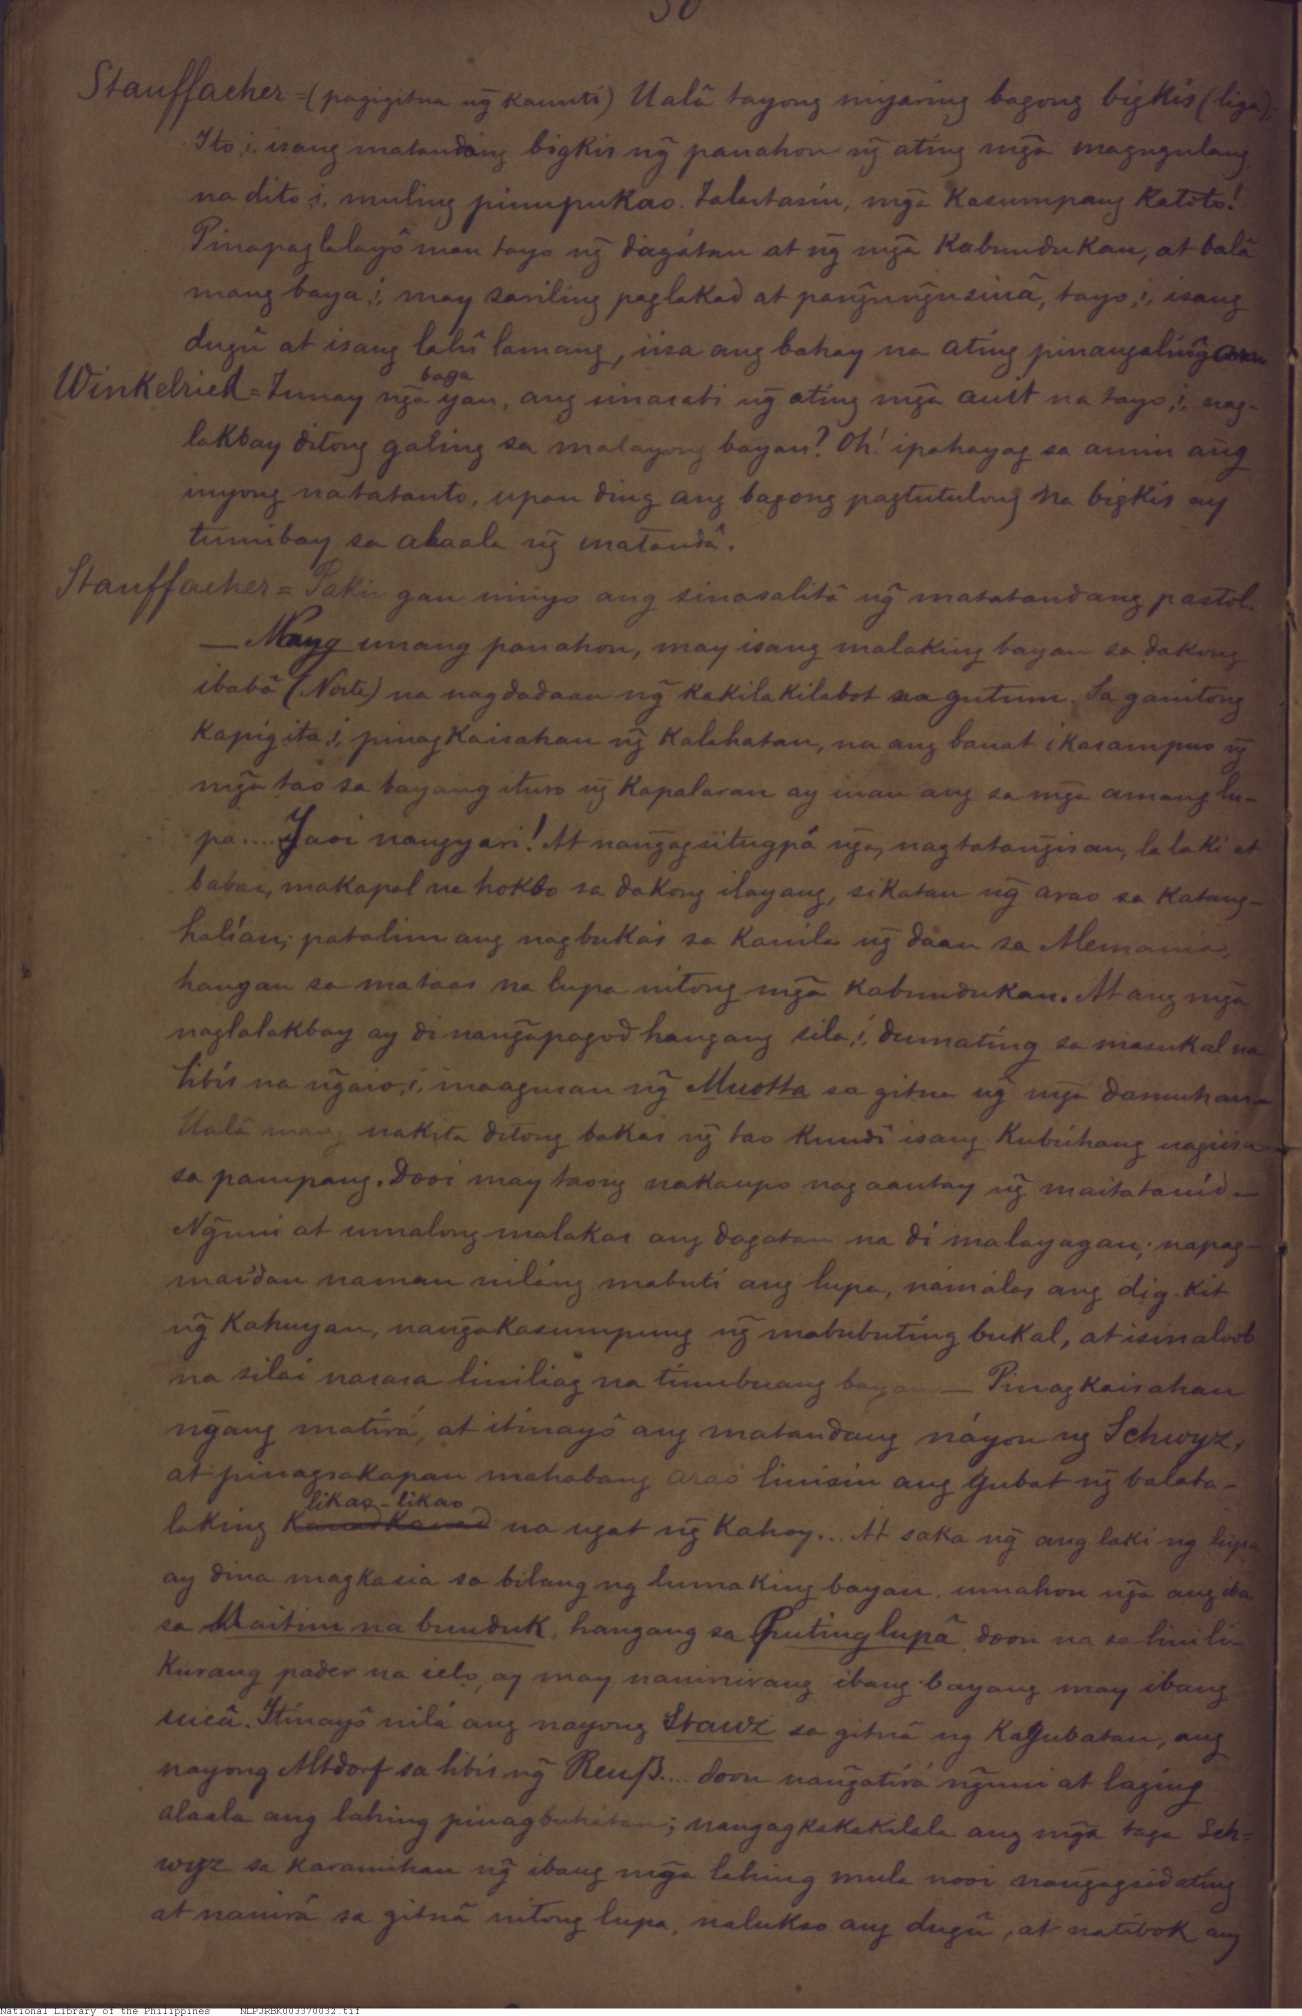 30
Stauffacher = (pagigitna ng̃ kaunti) Ualâ tayong niyaring bagong bigkis (liga);
Ito,i, isang matandang bigkis ng̃ panahon ng̃ ating mg̃a magugulang
na dito,i, muling pinupukao. Talastasin, mg̃a kasumpang katoto!
Pinapaglalayô man tayo ng̃ dagatan at ng̃ mg̃a kabundukan, at balâ
mang baya,i, may sariling paglakad at pang̃ung̃usinâ, tayo,i, isang
dugû at isang lahî lamang, iisa ang bahay na ating pinangaling̃an
Winkelried = Tunay ng̃a baga yan, ang sinasabi ng̃ ating mg̃a auit na tayo,i, nag-
lakbay ditong galing sa malayong bayan? Oh! ipahayag sa amin ang
inyong natatanto, upan ding ang bagong pagtutulong na bigkis ay
tumibay sa alaala ng̃ matandâ.
Stauffacher = Pakingan ninyo ang sinasalitâ ng̃ matatandang pastol.
— Nang unang panahon, may isang malaking bayan sa dakong
ibabâ (Norte) na nagdadaan ng̃ kakilakilabot na gutum. Sa ganitong
kapigita,i, pinagkaisahan ng̃ kalahatan, na ang bauat ikasampuo ng̃
mg̃a tao sa bayang ituro ng̃ kapalaran ay iuan ang sa mg̃a amang lu-
pa.... Yaoi nangyari! At nang̃agsitugpá ng̃a, nagtatang̃isan, lalaki at
babai, makapal na hokbo sa dakong ilayang, sikatan ng̃ arao sa katang-
halian; patalim ang nagbukás sa kanila ng̃ daan sa Alemania,
hangan sa mataas na lupa nitong mg̃a kabundukan. At ang mg̃a
naglalakbay ay di nang̃apagod hangang sila,i, dumating sa masukal na
libis na ng̃aio,i, inaagusan ng̃ Muotta sa gitna ng̃ mg̃a damuhan—
Ualâ nakita ditong bakas ng̃ tao kundî isang kubúhang nagiisa
sa pampang. Dooi may taong nakaupo nag aantay ng̃ maitatauíd—
Ng̃uni at umalong malakas ang dagatan na di malayagan; napag-
masdan naman niláng mabuti ang lupa, námálas ang dig-kit
ng̃ kahuyan, nang̃akasumpung ng̃ mabubuting bukal, at isinaloob
na silai nasasa liniliag na tinubuang bayan— Pinagkaisahan
ng̃ang matirá, at itinayô ang matandang náyon ng Schwyz,
at pinagsakapan mahabang arao linisin ang gubat ng̃ balata-
laking likao-likao na ugat ng̃ kahoy... At saka ng̃ ang laki ng lupa
ay dina magkasia sa bilang ng lumaking bayan, umahon ng̃a ang iba
sa Maitim na bunduk, hangang sa Puting lupâ, doon na sa linili-
kurang pader na ielo, ay may naninirang ibang bayang may ibang
uicâ. Itinayô nilá ang nayong Stawz sa gitnâ ng kagubatan, ang
nayong Altdorf sa libis ng̃ Reuß.... doon nang̃atirá ng̃uni at laging
alaala ang lahing pinagbuhatan; nangagkakakilala ang mg̃a taga Sch-
wyz sa karamihan ng̃ ibang mg̃a lahing mula nooi nang̃agsidating
at nanirá sa gitnâ nitong lupa, nalukso ang dugû, at natibok ang
National Library of the Philippines NLPJRBK003370032.tif